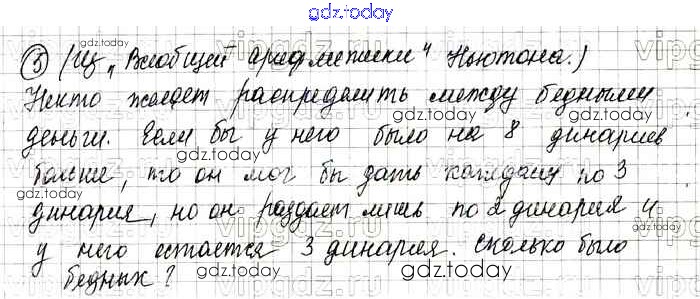 gdz.today
⑤ (Из „Всеобщей арифметики" Ньютона.)
gdz.today
Некто желает распределить между бедными
gdz.today
деньги. Если бы у него было на 8 динариев
gdz.today
больше, то он мог бы дать каждому по 3
gdz.today
динария, но он раздает лишь по 2 динария и
у него остается 3 динария. Сколько было
gdz.today
бедных?
gdz.today
vipgdz.ru